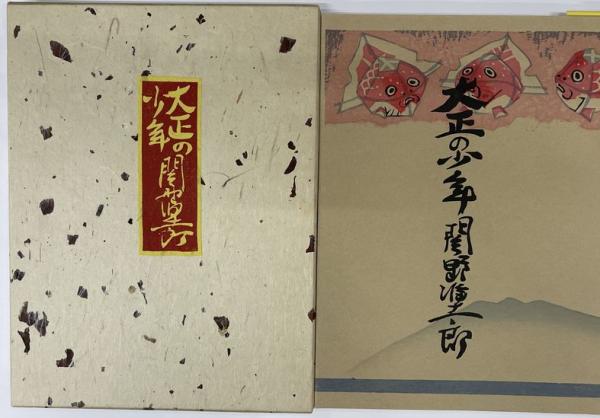 大正の
少年
関野凖一郎
大正の少年 関野凖一郎